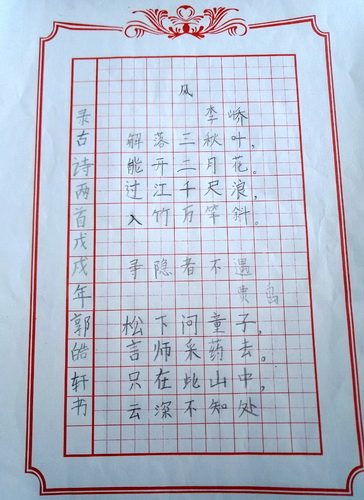 风
李峤
解落三秋叶,
能开二月花。
过江千尺浪,
入竹万竿斜。
寻隐者不遇
贾岛
松下问童子,
言师采药去。
只在此山中,
云深不知处
录古诗两首戊戌年郭皓轩书